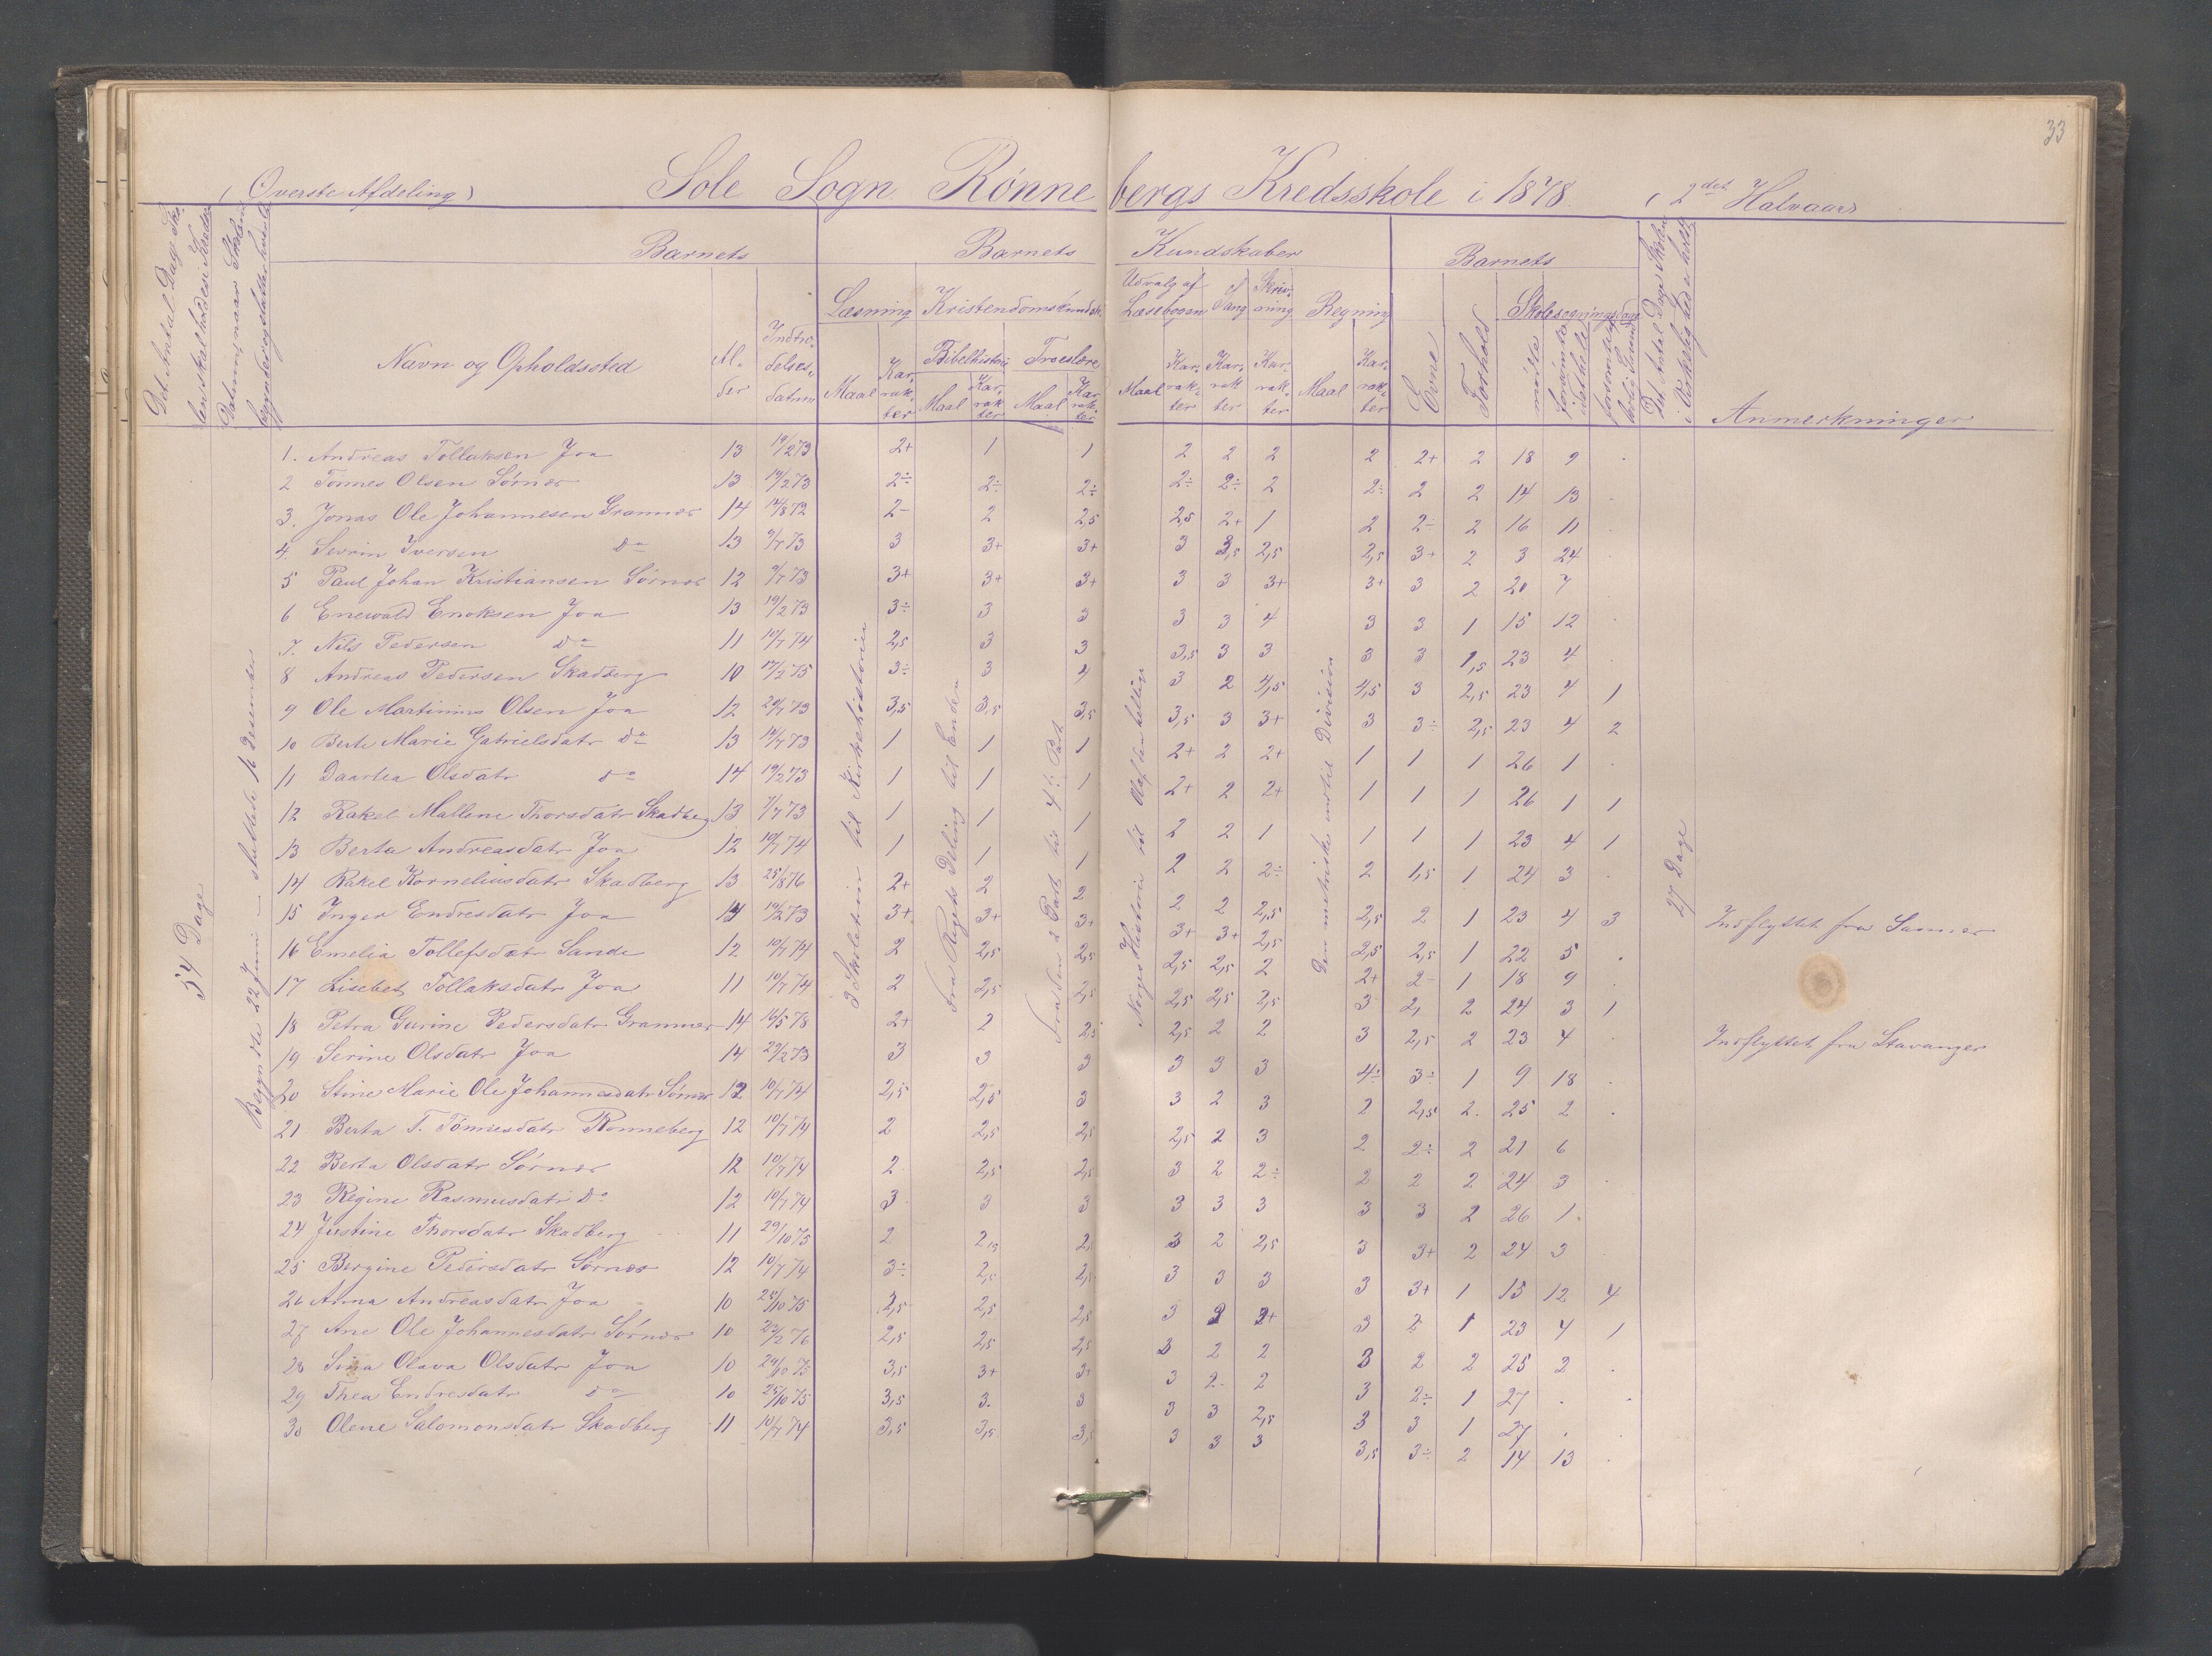 33
(Øverste Afdeling)
Sole Sogn Rønnebergs Kredsskole i 1878. (2det Halvaar)
Det Antal Dage Skolen skal holdes i Kredsen
Datum, naar Skolen begyndte og slutter hvert
Barnets
Barnets Kundskaber
Barnets
Navn og Opholdssted
Alder
Indtrædelsesdatum
Læsning
Kristendomskundsk.
Bibelhistorie
Troeslære
Udvalg af Læsebogen
Sang
Skrivning
Regning
Maal Karakter
Maal Karakter
Maal Karakter
Maal Karakter Karakter Karakter
Maal Karakter
Evne
Forhold
Skolesøgningsdage
mødte
forsømte
Det Antal Dage Skolen i Virkelighed er holdt
Anmerkninger
54 Dage
Begyndte 22 Juni – sluttede 16 Desember
2 Skoletrin til Kirkehistorien
Fra Rigets Deling til Enden
Fra den 2 Part til 4de Part
Norges Historie til Olaf den hellige
Den metriske ind til Division
27 Dage
1. Andreas Tollaksen Joa 13 19/2 73 2+ 1 1 2 2 2 2 2+ 2 18 9 .
2 Tönnes Olsen Sørnes 13 19/2 73 2÷ 2÷ 2÷ 2÷ 2÷ 2 2÷ 2 2 14 13 .
3. Jonas Ole Johannesen Grannes 14 12/8 72 2- 2 2,5 2,5 2+ 1 2 2÷ 2 16 11 .
4. Sevrin Iversen Do 13 9/7 73 3 3+ 3+ 3 3,5 2,5 2,5 3+ 2 3 24 .
5 Paul Johan Kristiansen Sørnes 12 9/7 73 3+ 3+ 3+ 3 3 3+ 3+ 3 2 20 7 .
6 Enevald Enoksen Joa 13 19/2 73 3÷ 3 3 3 3 4 3 3 1 15 12 .
7. Nils Pedersen Do 11 10/7 74 2,5 3 3 3,5 3 3 3 3 1,5 23 4 .
8 Andreas Pedersen Skadberg 10 17/2 75 3÷ 3 4 3 2 4,5 4,5 3 2,5 23 4 1
9 Ole Martinius Olsen Joa 12 29/7 73 3,5 3,5 3,5 3,5 3 3+ 3 3÷ 2,5 23 4 2
10 Berte Marie Gabrielsdatr Do 13 19/7 73 1 1 1 2+ 2 2+ 1 1 1 26 1 .
11 Daartea Olsdatr Do 14 19/2 73 1 1 1 2+ 2 2+ 1 1 1 26 1 1
12 Rakel Mallene Thorsdatr Skadberg 13 9/7 73 1 1 1 2 2 1 1 1 1 23 4 1
13 Berta Andreasdatr Joa 12 10/7 74 1 1 1 2 2 2÷ 2 1,5 1 24 3 .
14 Rakel Korneliusdatr Skadberg 13 25/8 76 2+ 2 2 2 2 2,5 2,5 2 1 23 4 3 Indflyttet fra
15 Inger Endresdatr Joa 14 19/2 73 3+ 3+ 3+ 3+ 3+ 2,5 2,5 2,5 1 22 5 .
16 Emelia Tollefsdatr Sande 12 10/7 74 2 2,5 2,5 2,5 2,5 2 2+ 2- 1 18 9 .
17 Lisebet Tollaksdatr Joa 11 10/7 74 2 2,5 2,5 2,5 2,5 2,5 3 2, 2 24 3 1
18 Petra Gurine Pedersdatr Grannes 14 16/5 78 2+ 2 2,5 2,5 2 2 3 2,5 2 23 4 . Indflyttet fra Stavanger
19 Serine Olsdatr Joa 14 29/2 73 3 3 3 3 3 3 4÷ 3÷ 1 9 18 .
20 Stine Marie Ole Johannesdatr Sørnes 12 10/7 74 2,5 2,5 3 3 2 3 2 2,5 2. 25 2 .
21 Berta T. Tönnesdatr Rønneberg 12 10/7 74 2 2,5 2,5 2,5 2 3 2 2÷ 2 21 6
22 Berta Olsdatr Sørnes 12 10/7 74 2 2,5 2,5 3 2 2÷ 2 2 2 24 3 .
23 Regine Rasmusdatr Do 12 10/7 74 3 3 3 3 3 3 3 3 2 26 1 .
24 Justine Thorsdatr Skadberg 11 29/10 75 2 2,5 2, 3 2 2,5 3 3+ 2 24 3
25 Bergine Pedersdatr Sørnes 12 10/7 74 3÷ 2,5 2,5 3 3 3 3 3+ 1 15 12 4
26 Anna Andreasdatr Joa 10 25/10 75 2,5 2,5 2,5 3 2 3+ 3 2 1 23 4 1
27 Ane Ole Johannesdatr Sørnes 10 23/2 76 2,5 2,5 2,5 3 2 2 3 2 2 25 2 .
28 Sina Olava Olsdatr Joa 10 29/10 75 3,5 3+ 3+ 3 2 2 3 2÷ 1 27 . .
29 Thea Endresdatr Do 10 25/10 75 3,5 3. 3 3 3 2,5 3 3 1 27 . .
30 Olene Salomonsdatr Skadberg 11 10/7 74 3,5 3,5 3,5 3 3 3 3,5 3÷ 2 14 13 .